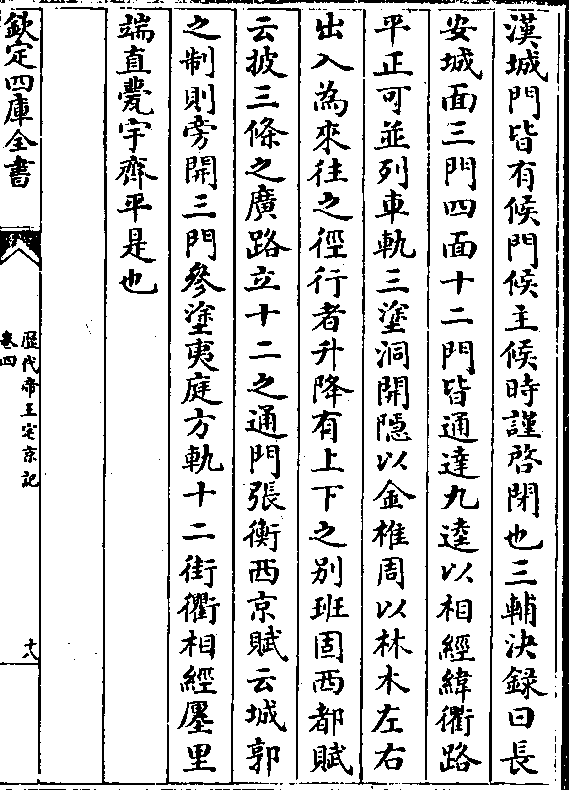 漢城門皆有候門候主候時謹啓閉也三輔決録曰長
安城面三門四面十二門皆通達九逵以相經緯衢路
平正可並列車軌三塗洞開隱以金椎周以林木左右
出入為來往之徑行者升降有上下之别班固西都賦
云披三條之廣路立十二之通門張衡西京賦云城郭
之制則旁開三門參塗夷庭方軌十二街衢相經廛里
端直甍宇齊平是也
欽定四庫全書
歴代帝王宅京記
卷四
十八